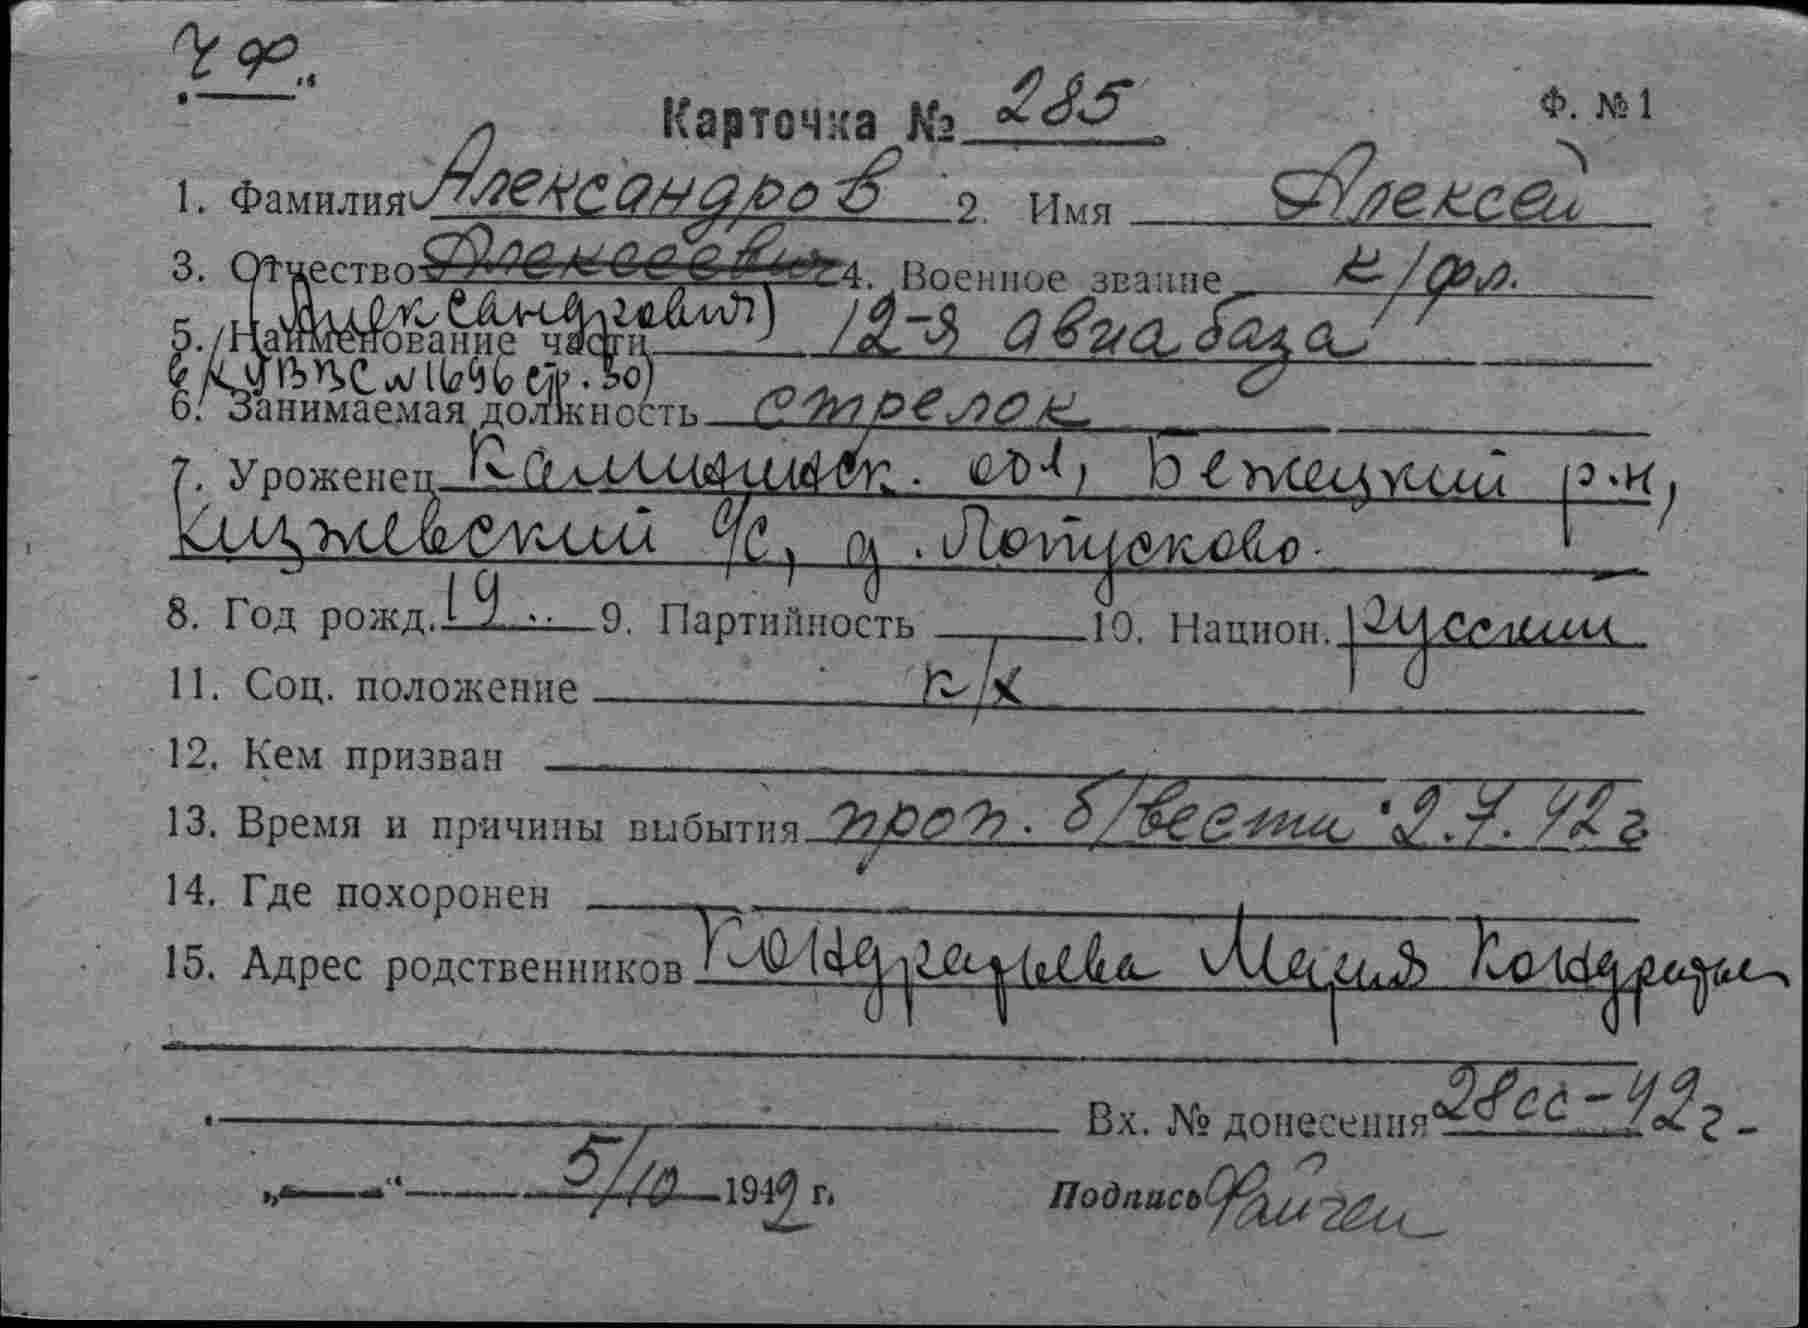 ч ф.
Карточка № 285 Ф. №1
1. Фамилия Александров 2. Имя Алексей
3. Отчество Алексеевич 4. Военное звание к/фл.
(Александрович)
5. Наименование части 12-я авиабаза
6. Занимаемая должность стрелок
7. Уроженец Калининск. обл, Бежецкий р.н,
с/с, д. Потусково.
8. Год рожд. 19.. 9. Партийность 10. Национ. русский
11. Соц. положение к/х
12. Кем призван
13. Время и причины выбытия проп. б/вести 2.7.42 г
14. Где похоронен
15. Адрес родственников Кондратьева Мария Кондратьев
Вх. № донесения 28сс-42г-
„ “ 5/10 1942 г. Подпись